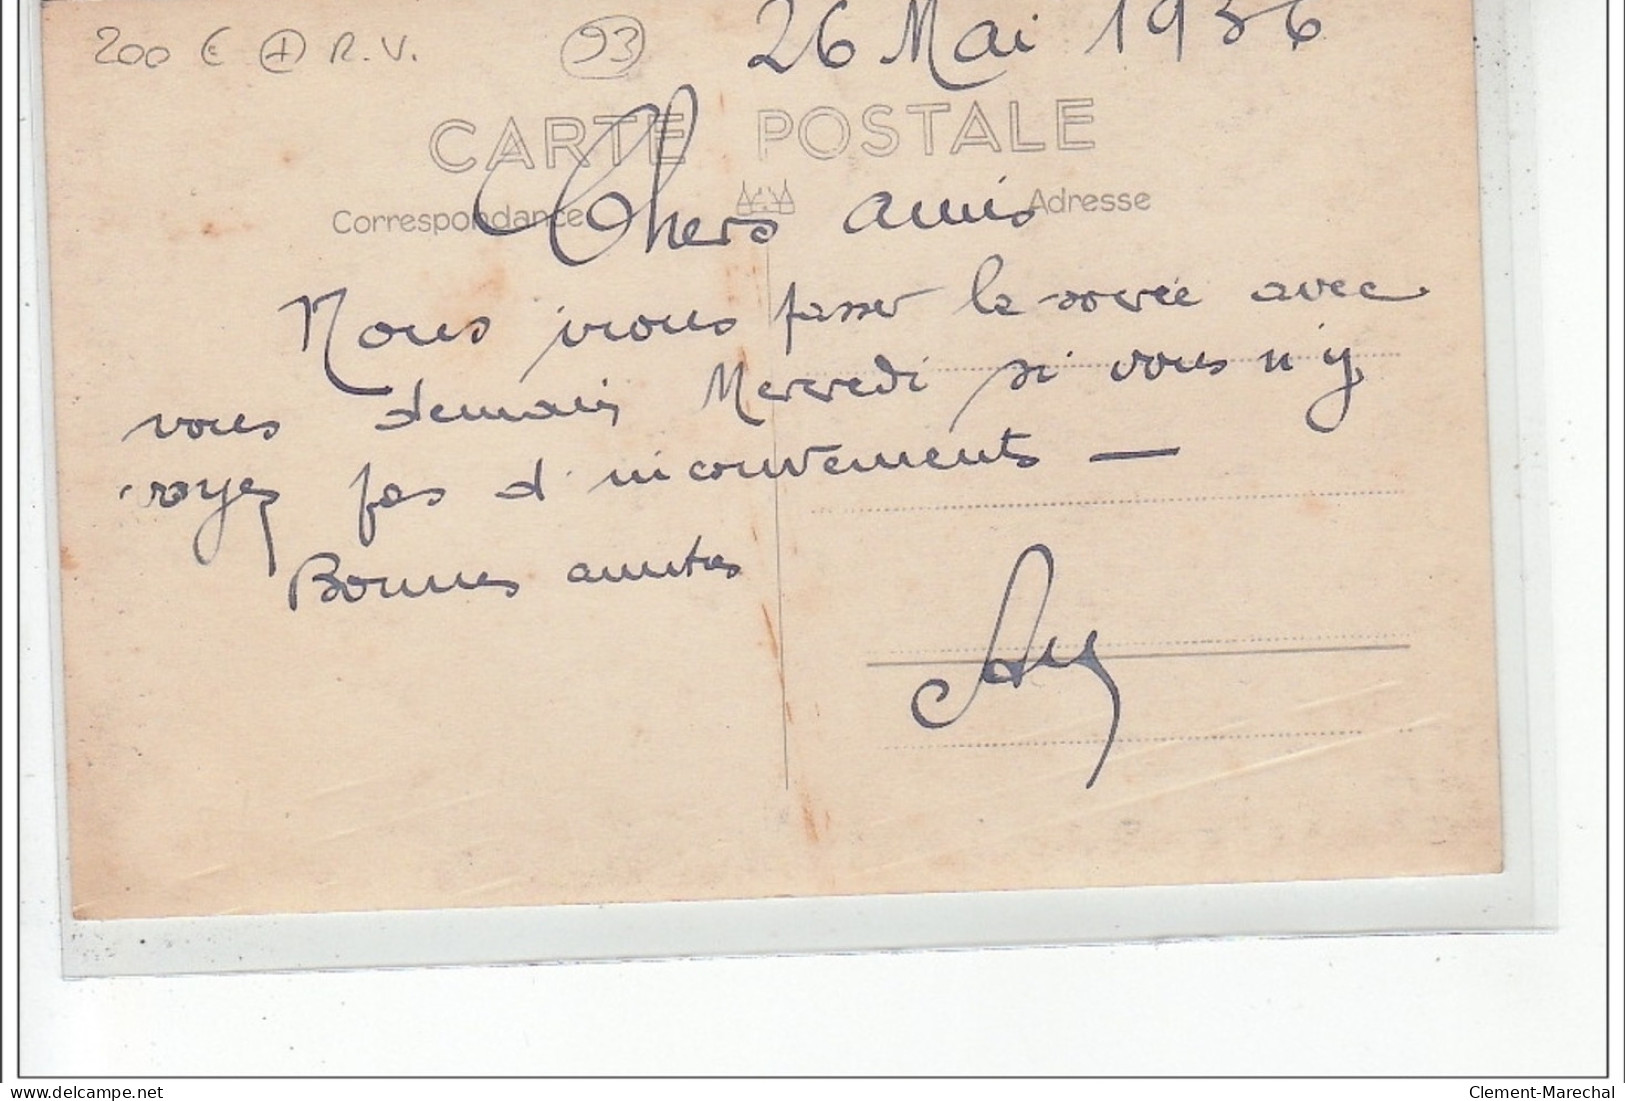 200 € + R.V. 93 26 Mai 1936
CARTE POSTALE
Correspondance Adresse
Chers amis
Nous irons passer la soirée avec
vous demain Mercredi si vous n'y
voyez pas d'inconvénients —
Bonnes amitiés
www.delcampe.net Clement-Marechal